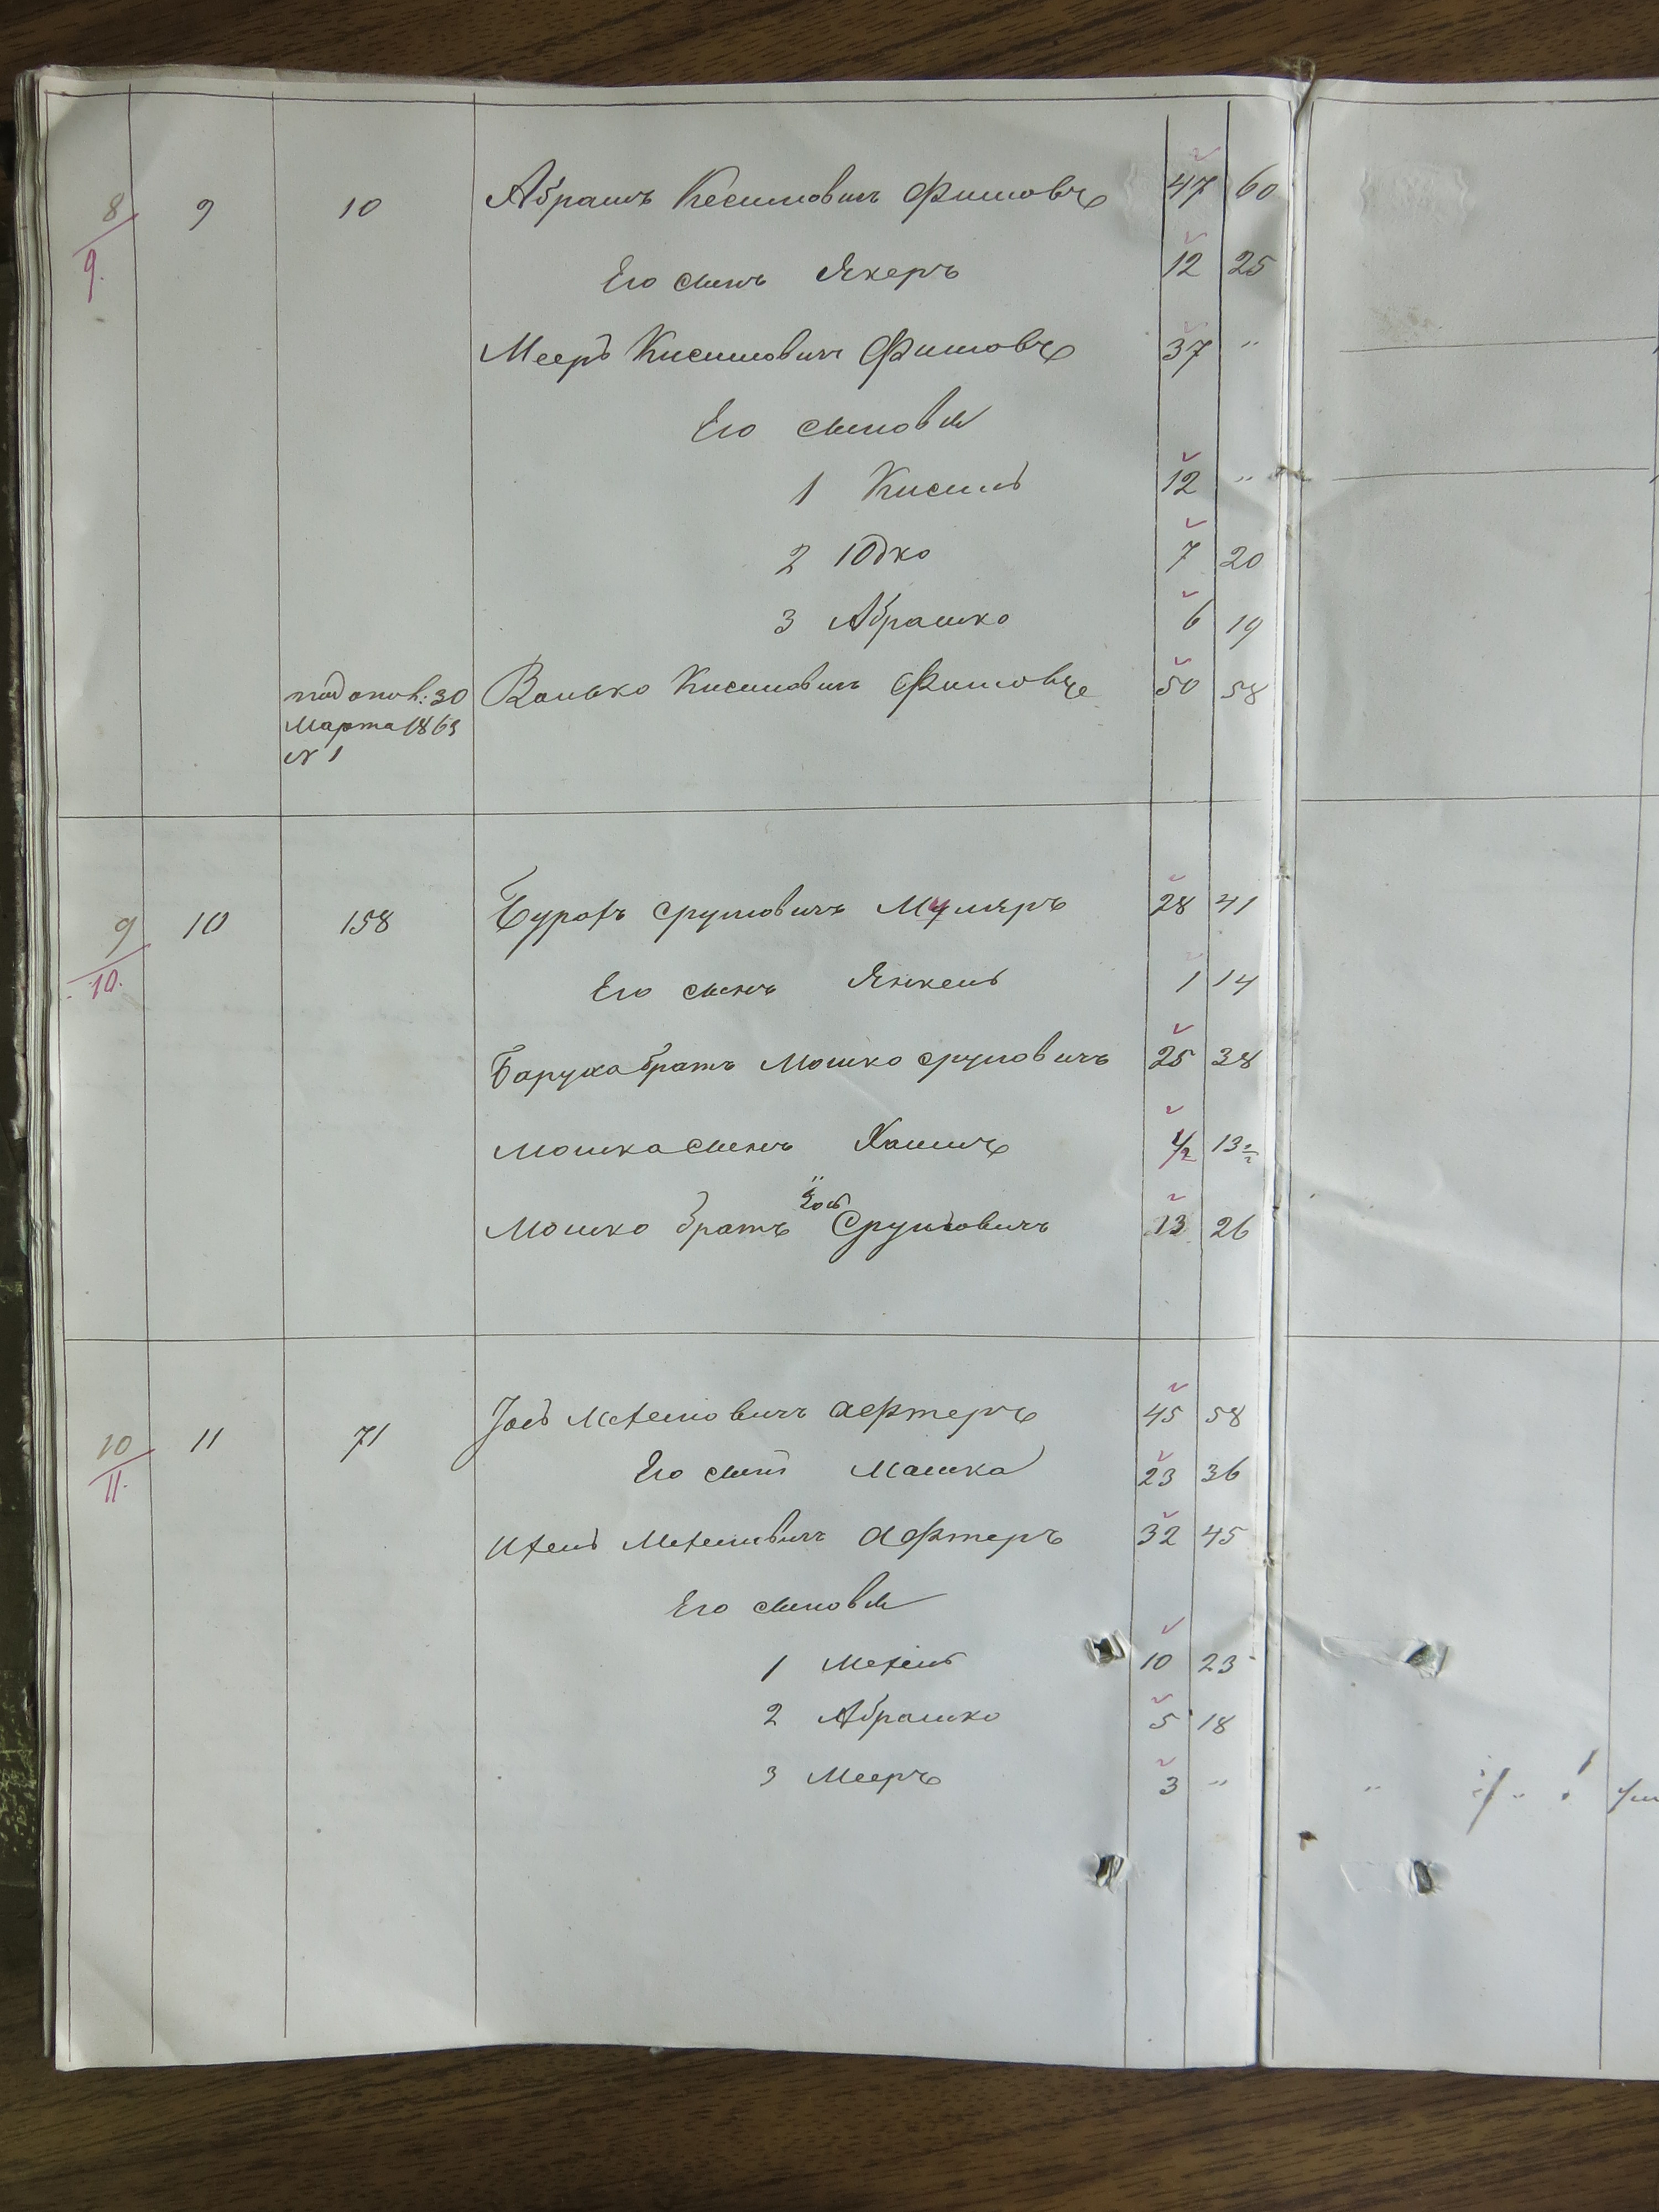 8/9. 9 10 Абрамъ Кесилювичъ Фишовъ 47 60
Его сынъ Янкеръ 12 25
Мееръ Кисилювичъ Фишовъ 37 "
Его сыновья
1 Кисиль 12 "
2 Юдко 7 20
3 Абрашко 6 19
30 Волько Кисилювичъ Фишовъ 50 58
Марта 1863
№ 1
9/10. 10 158 Бурохъ Сруловичъ Муляръ 28 41
Его сынъ Янкель 1 14
Баруха братъ Мошко Сруловичъ 25 38
Мошка сынъ Хаимъ 1/2 13 1/2
Іось
Мошко братъ Сруловичъ 13 26
10/11. 11 71 Іось Мехелювичъ Афтеръ 45 58
Его сынъ Машка 23 36
Ихель Мехелювичъ Афтеръ 32 45
Его сыновья
1 Мехель 10 23
2 Абрашко 5 18
3 Мееръ 3 "